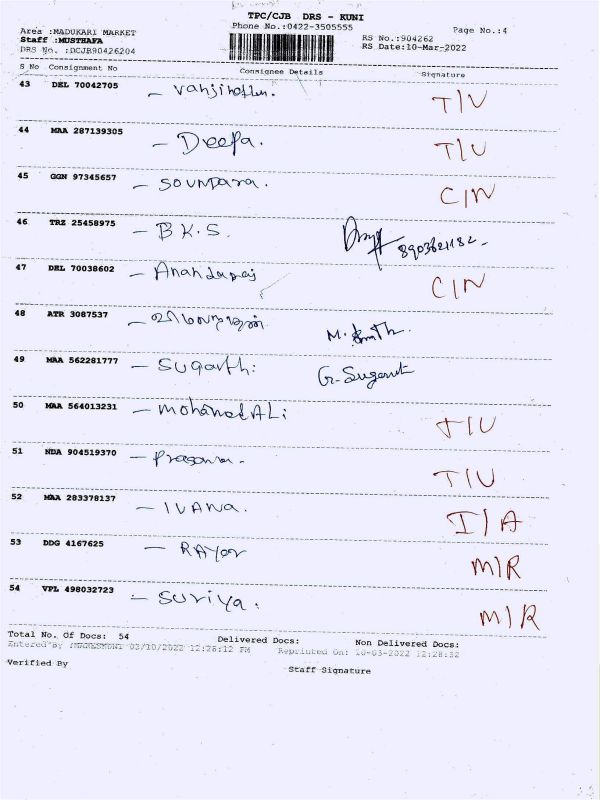 TPC/CJB DRS - KUNI
Phone No.:0422-3505555
Page No.:4
Area :MADUKARI MARKET
Staff :MUSTHAFA
DRS No. :DCJB90426204
RS No.:904262
RS Date:10-Mar-2022
S No Consignment No Consignee Details Signature
43 DEL 70042705 - T/U
44 MAA 287139305 - Deepa. T/U
45 GGN 97345657 - Soundara. C/N
46 TRZ 25458975 - B.K.S. 8903621182-
47 DEL 70038602 - Anandaraj C/N
48 ATR 3087537 - M.
49 MAA 562281777 - Sugarth: G.
50 MAA 564013231 - Mohamed ALi T/U
51 NDA 904519370 - Prasanna. T/U
52 MAA 283378137 - IVANA. I/A
53 DDG 4167625 - RAYar M/R
54 VPL 498032723 - Suriya. M/R
Total No. Of Docs: 54 Delivered Docs: Non Delivered Docs:
Entered By :MAGESMUNI 03/10/2022 12:28:12 PM Reprinted On: 10-03-2022 12:28:32
Verified By
Staff Signature